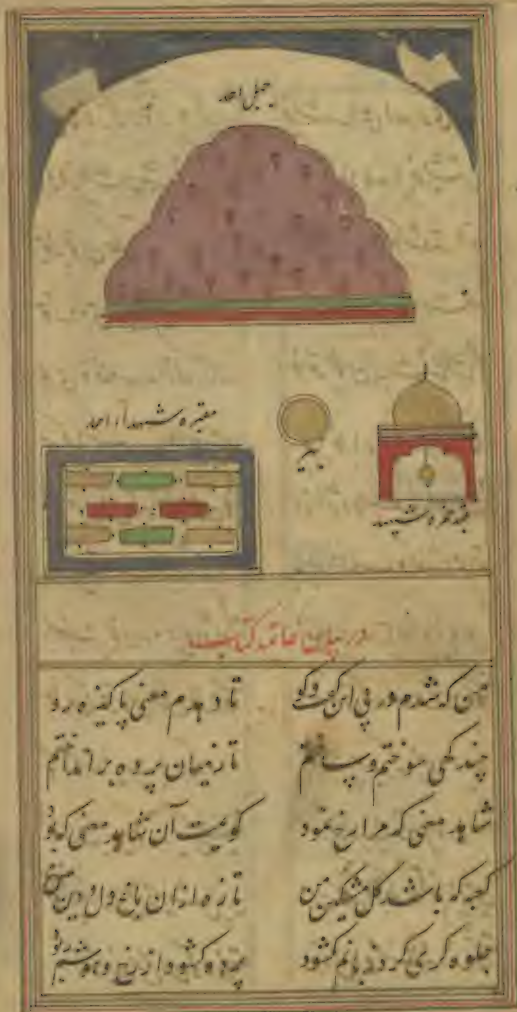 جبل احد
مقبره شهدآء احد
بیر
قبه حمزه شهید
در بیان خاتمه کتاب
من که شدم در پی این گفت و کو
تا دهدم معنی پاکیزه رو
چند کهی سوختم و ساختم
تا ز میان پرده بر انداختم
شاهد معنی که مرا رخ نمود
کویمت آن شاهد معنی که بود
کعبه که باشد کل مشکین من
تازه ازان باغ دل و دین من
جلوه کری کرد زبانم کشود
پرده کشود از رخ و هوشم ربود